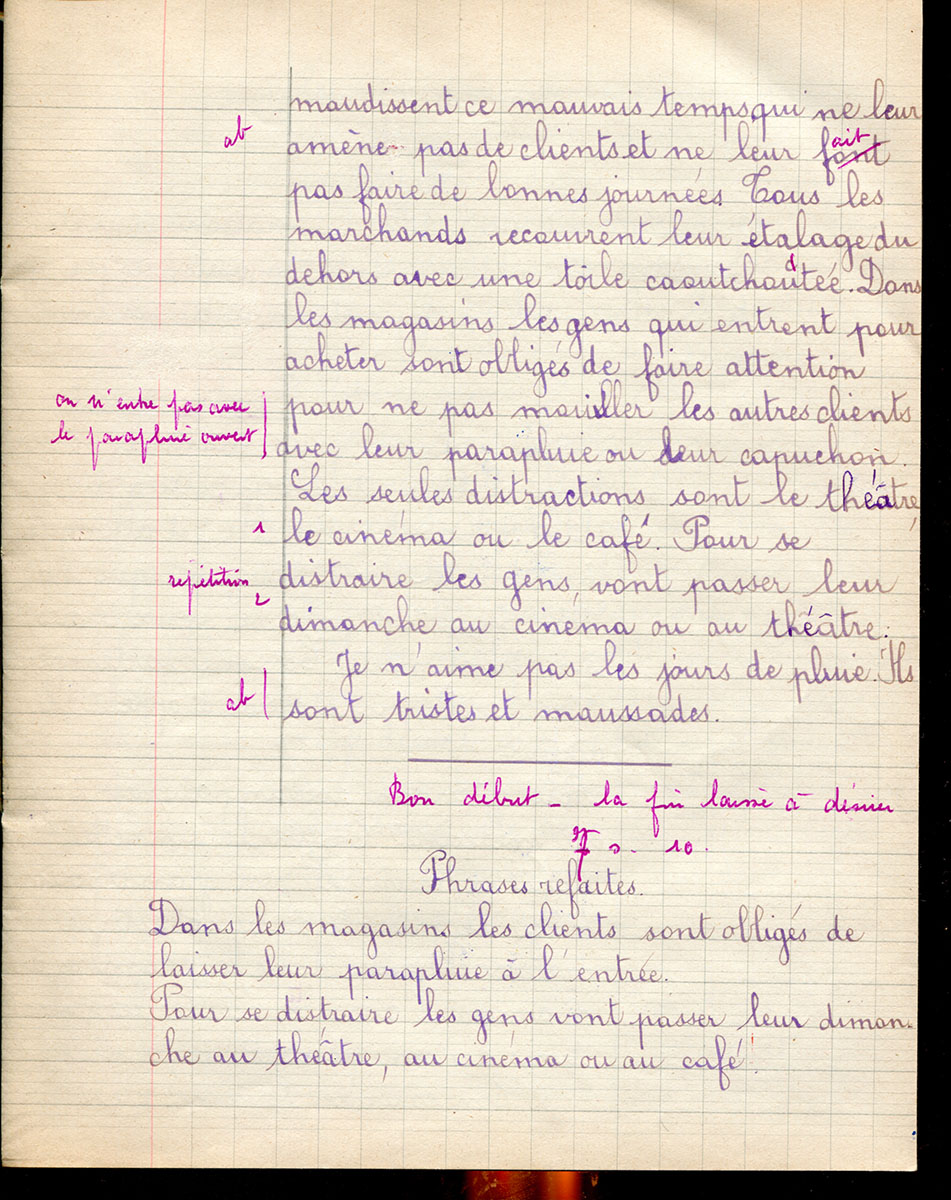 maudissent ce mauvais temps qui ne leur
ab
amène pas de clients et ne leur font
ait
pas faire de bonnes journées. Tous les
marchands recouvrent leur étalage du
dehors avec une toile caoutchoutée. Dans
les magasins les gens qui entrent pour
acheter sont obligés de faire attention
on n'entre pas avec
le parapluie ouvert
pour ne pas mouiller les autres clients
avec leur parapluie ou leur capuchon.
Les seules distractions sont le théâtre,
1
le cinéma ou le café. Pour se
répétition
2
distraire les gens, vont passer leur
dimanche au cinéma ou au théâtre.
Je n'aime pas les jours de pluie. Ils
ab
sont tristes et maussades.
Bon début - la fin laisse à désirer
10.
Phrases refaites.
Dans les magasins les clients sont obligés de
laisser leur parapluie à l'entrée.
Pour se distraire les gens vont passer leur diman-
che au théâtre, au cinéma ou au café.